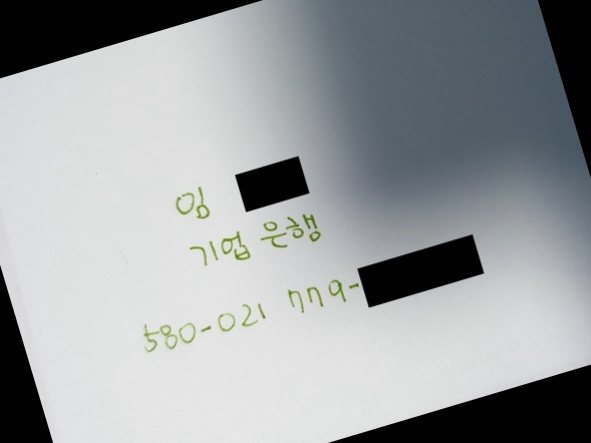 임
기업 은행
580-021 779-